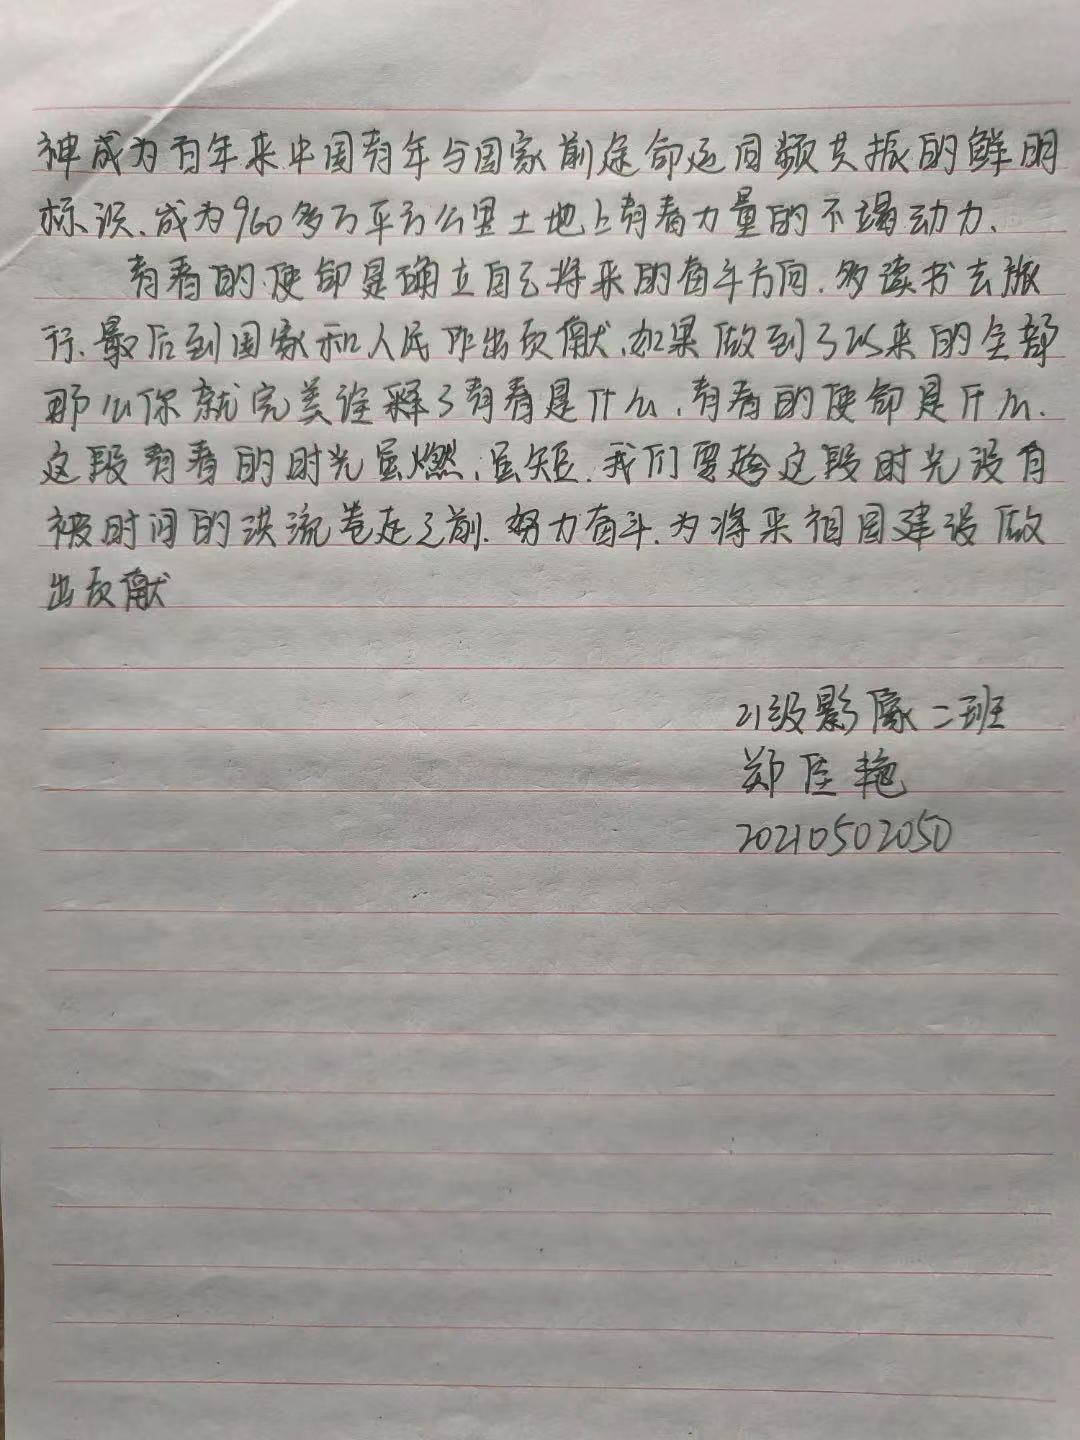 神成为百年来中国青年与国家前途命运同频共振的鲜明
标识、成为960多万平方公里土地上青春力量的不竭动力、
青春的使命是确立自己将来的奋斗方向.多读书去旅
行、最后到国家和人民作出贡献、如果做到了以来的全部
那么你就完美诠释了青春是什么、青春的使命是什么.
这段青春的时光虽燃、虽短.我们要趁这段时光没有
被时间的洪流卷走之前.努力奋斗.为将来祖国建设做
出贡献
21级影像二班
郑佳艳
20210502050